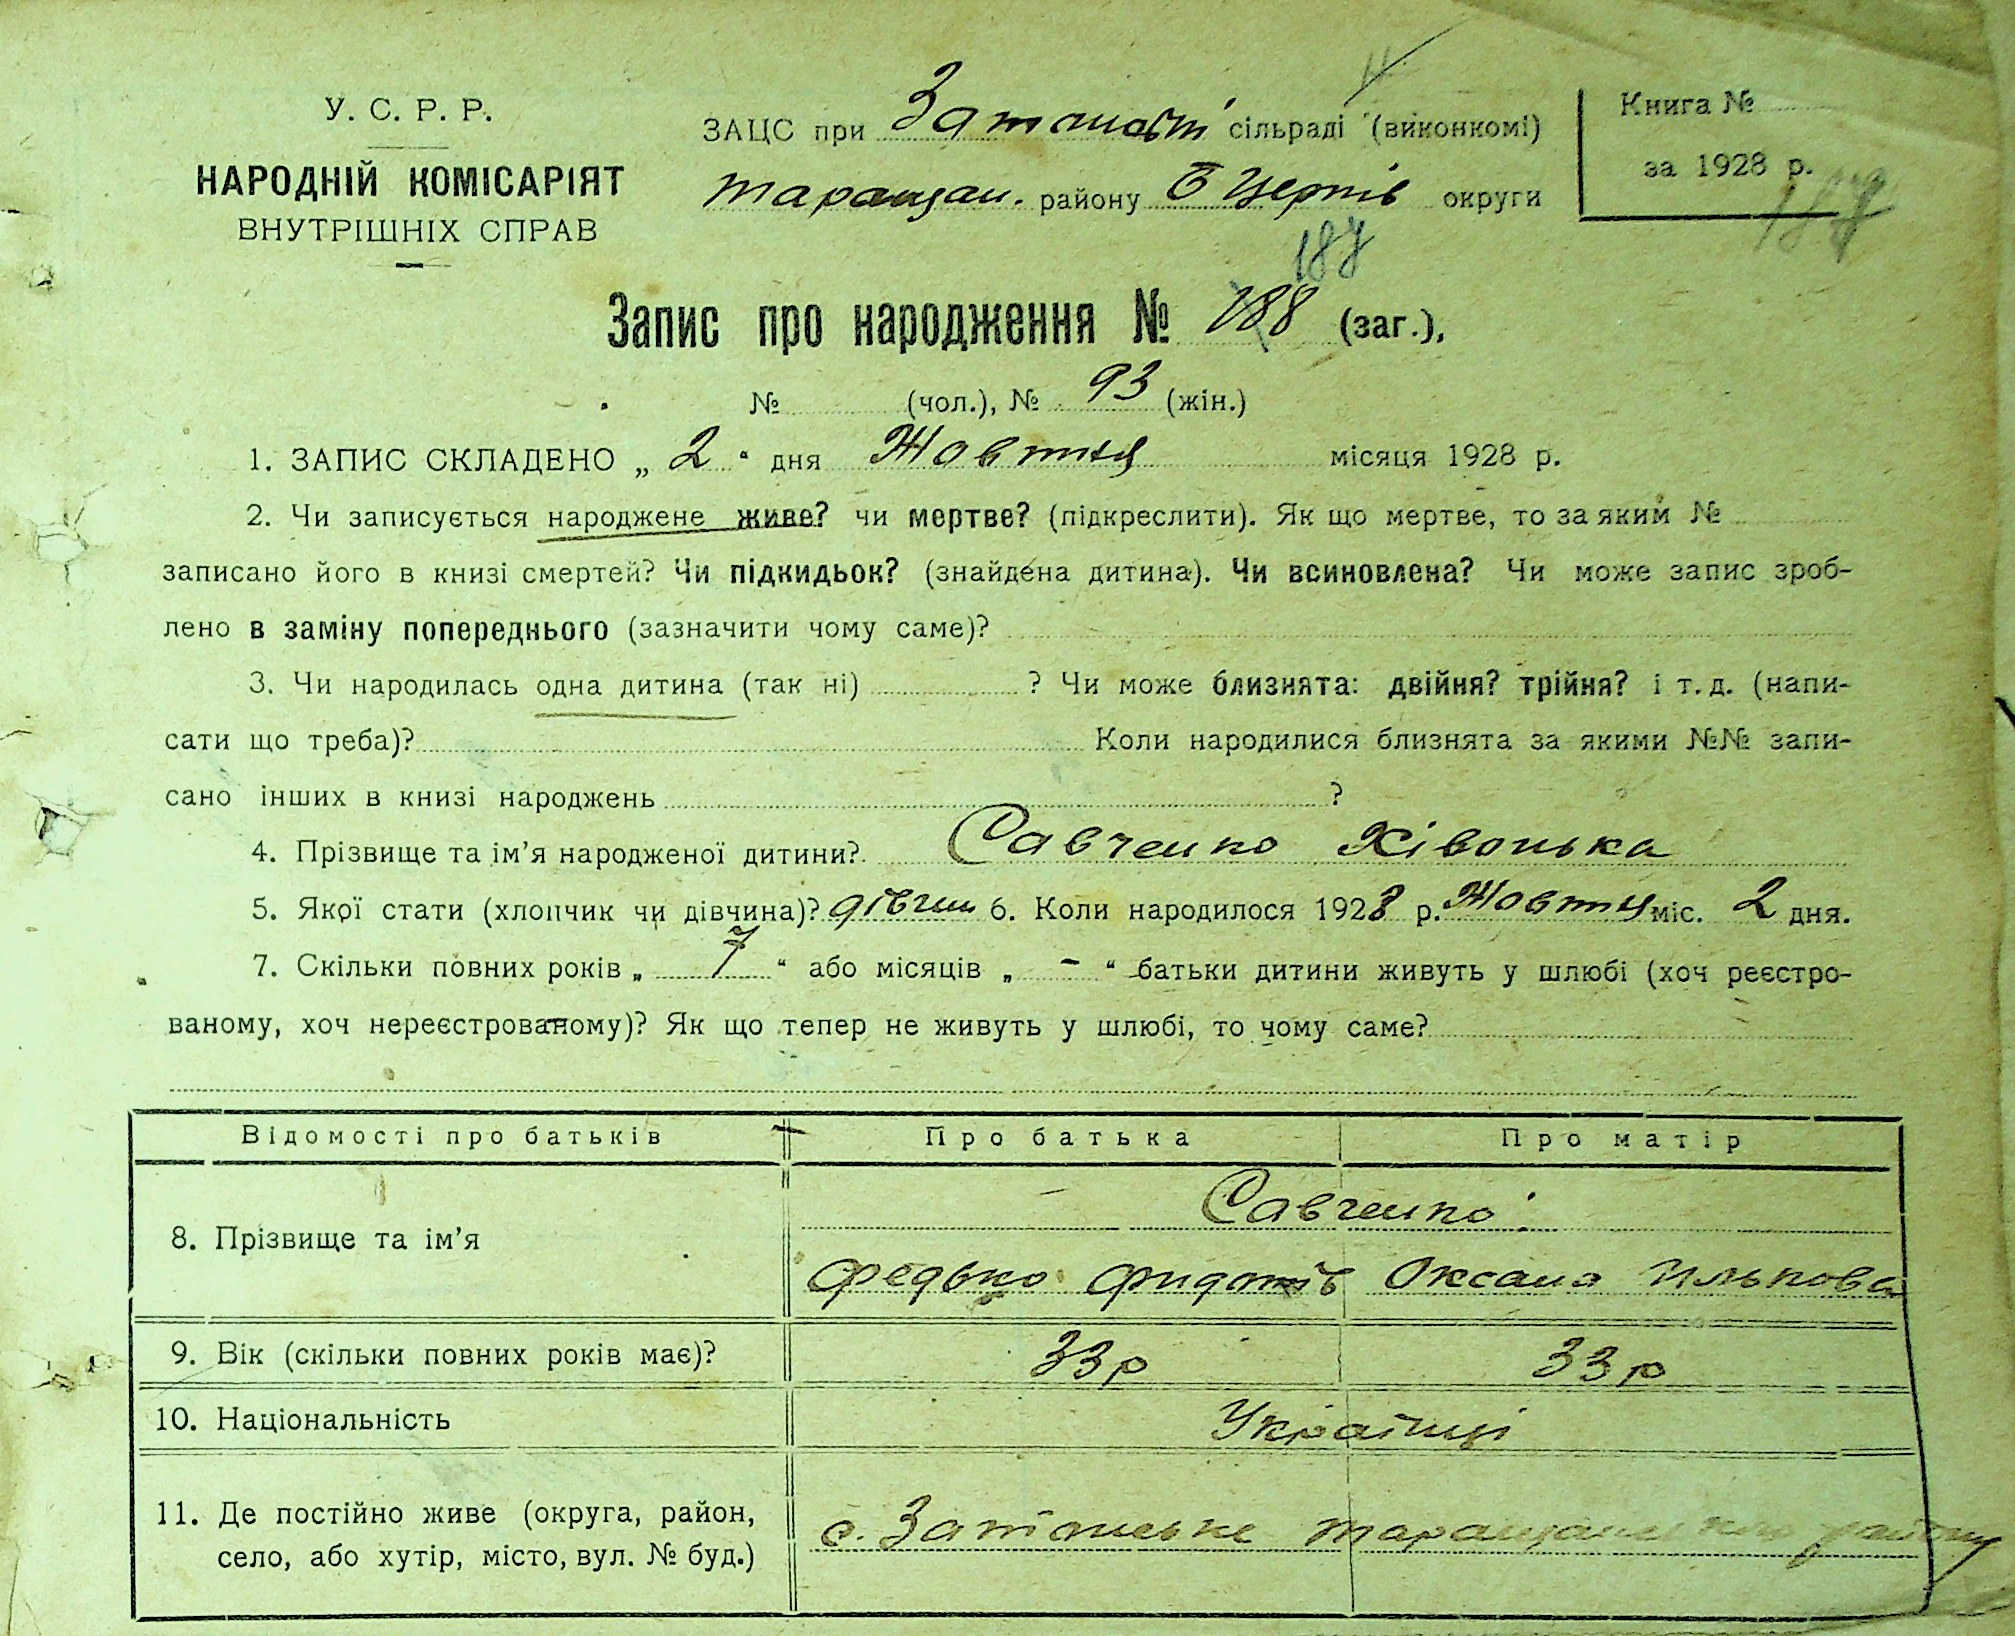 У. С. Р. Р.
НАРОДНІЙ КОМІСАРІЯТ
ВНУТРІШНІХ СПРАВ
ЗАЦС при сільраді (виконкомі)
Таращан. району Б Церків округи
Книга №
за 1928 р.
187
187
Запис про народження № 188 (заг.),
№ (чол.), № 93 (жін.)
1. ЗАПИС СКЛАДЕНО „ 2 “ дня Жовтня місяця 1928 р.
2. Чи записується народжене живе? чи мертве? (підкреслити). Як що мертве, то за яким №
записано його в книзі смертей? Чи підкидьок? (знайдена дитина). Чи всиновлена? Чи може запис зроб-
лено в заміну попереднього (зазначити чому саме)?
3. Чи народилась одна дитина (так ні) ? Чи може близнята: двійня? трійня? і т. д. (напи-
сати що треба)? Коли народилися близнята за якими №№ запи-
сано інших в книзі народжень ?
4. Прізвище та ім’я народженої дитини? Савченко Хівонька
5. Якої стати (хлопчик чи дівчина)? дівчин 6. Коли народилося 1928 р. Жовтня міс. 2 дня.
7. Скільки повних років „ 7 “ або місяців „ - “ батьки дитини живуть у шлюбі (хоч реєстро-
ваному, хоч нереєстрованому)? Як що тепер не живуть у шлюбі, то чому саме?
Відомості про батьків Про батька Про матір
8. Прізвище та ім’я
Савченко
Федько Оксана Ількова
9. Вік (скільки повних років має)? 33 р 33 р
10. Національність Українці
11. Де постійно живе (округа, район,
село, або хутір, місто, вул. № буд.)
с. Таращанського району